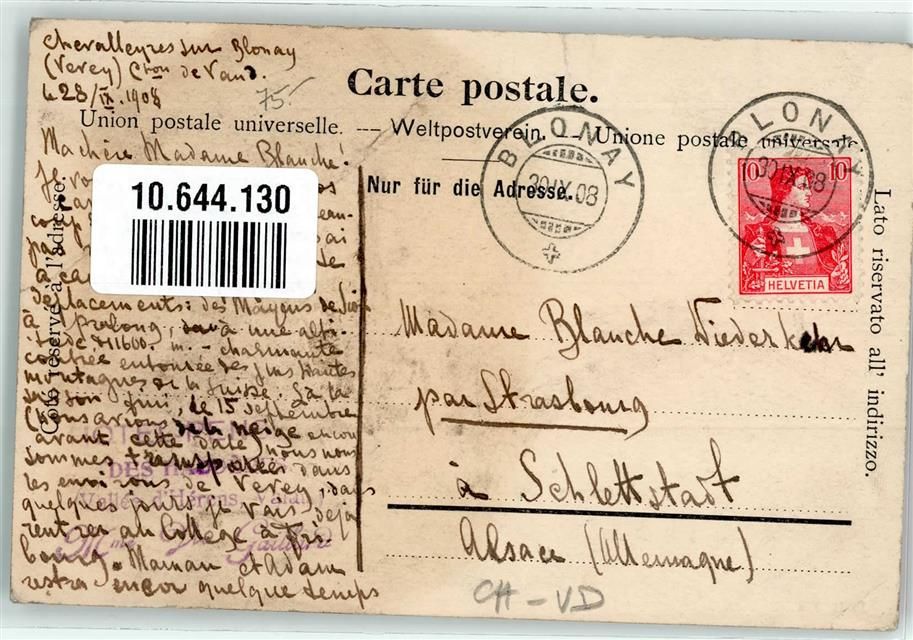 Chevalleyres sur Blonay
(Vevey) Cton de Vaud.
28/IX.1908
75.-
Carte postale.
Union postale universelle. — Weltpostverein. — Unione postale universale.
Nur für die Adresse.
Côté réservé à l'adresse.
Lato riservato all' indirizzo.
BLONAY
30.IX.08
BLONAY
30.IX.08
10 10
HELVETIA
10.644.130
Ma chère Madame Blanche!
Je
coup
à
déplacements: des Mayens de Sion
à Pralong, à une alti-
tude de 1600 m. - charmante
contrée entourée des plus hautes
montagnes de la Suisse.
son fini, le 15 septembre
(nous avions de la neige encore
avant cette date) nous nous
sommes transportés dans
les environs de Vevey, dans
quelques jours je vais déjà
rentrer au Collège à Fri-
bourg. Maman et Adam
restera encor quelque temps
DES
Vallée d'Hérens, Valais
Mme
Madame Blanche Niederkehr
par Strasbourg
à Schlettstadt
Alsace (Allemagne)
CH-VD